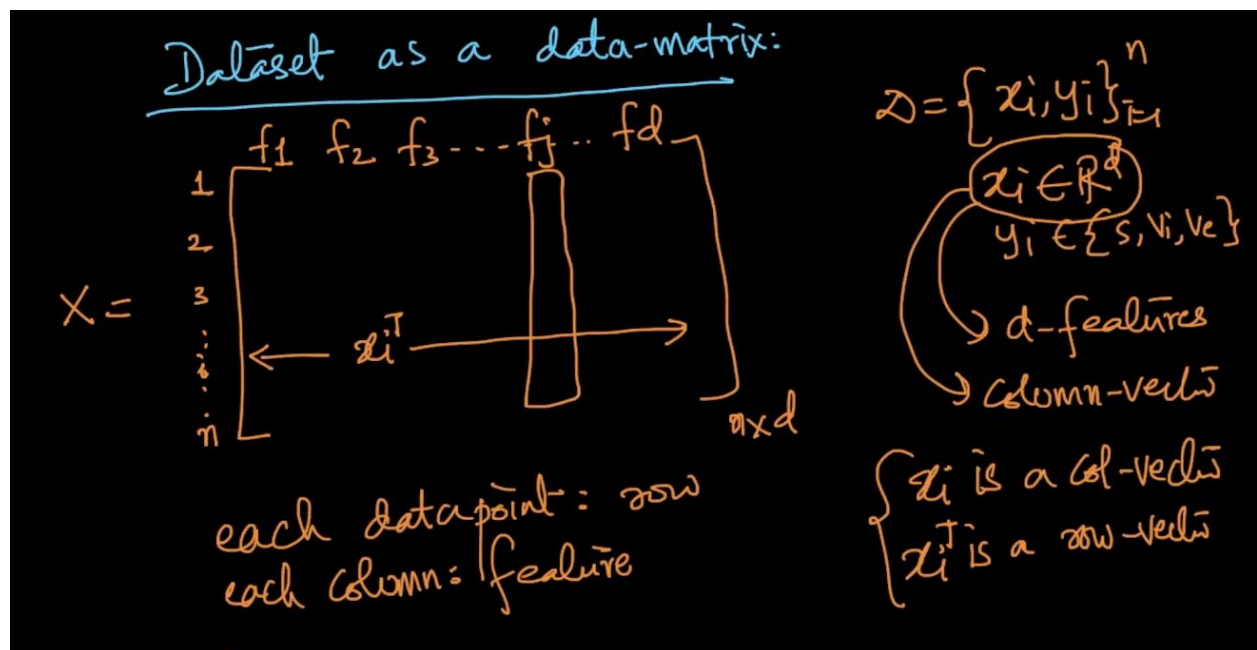 Dataset as a data-matrix:
f1 f2 f3 --- fj .. fd
1
2
3
X =
xiᵀ
i
n
n×d
each datapoint: row
each column: feature
D = {xi, yi}ⁿi=1
xi ∈ ℝᵈ
yi ∈ {S, Vi, Ve}
d-features
column-vector
xi is a col-vector
xiᵀ is a row-vector